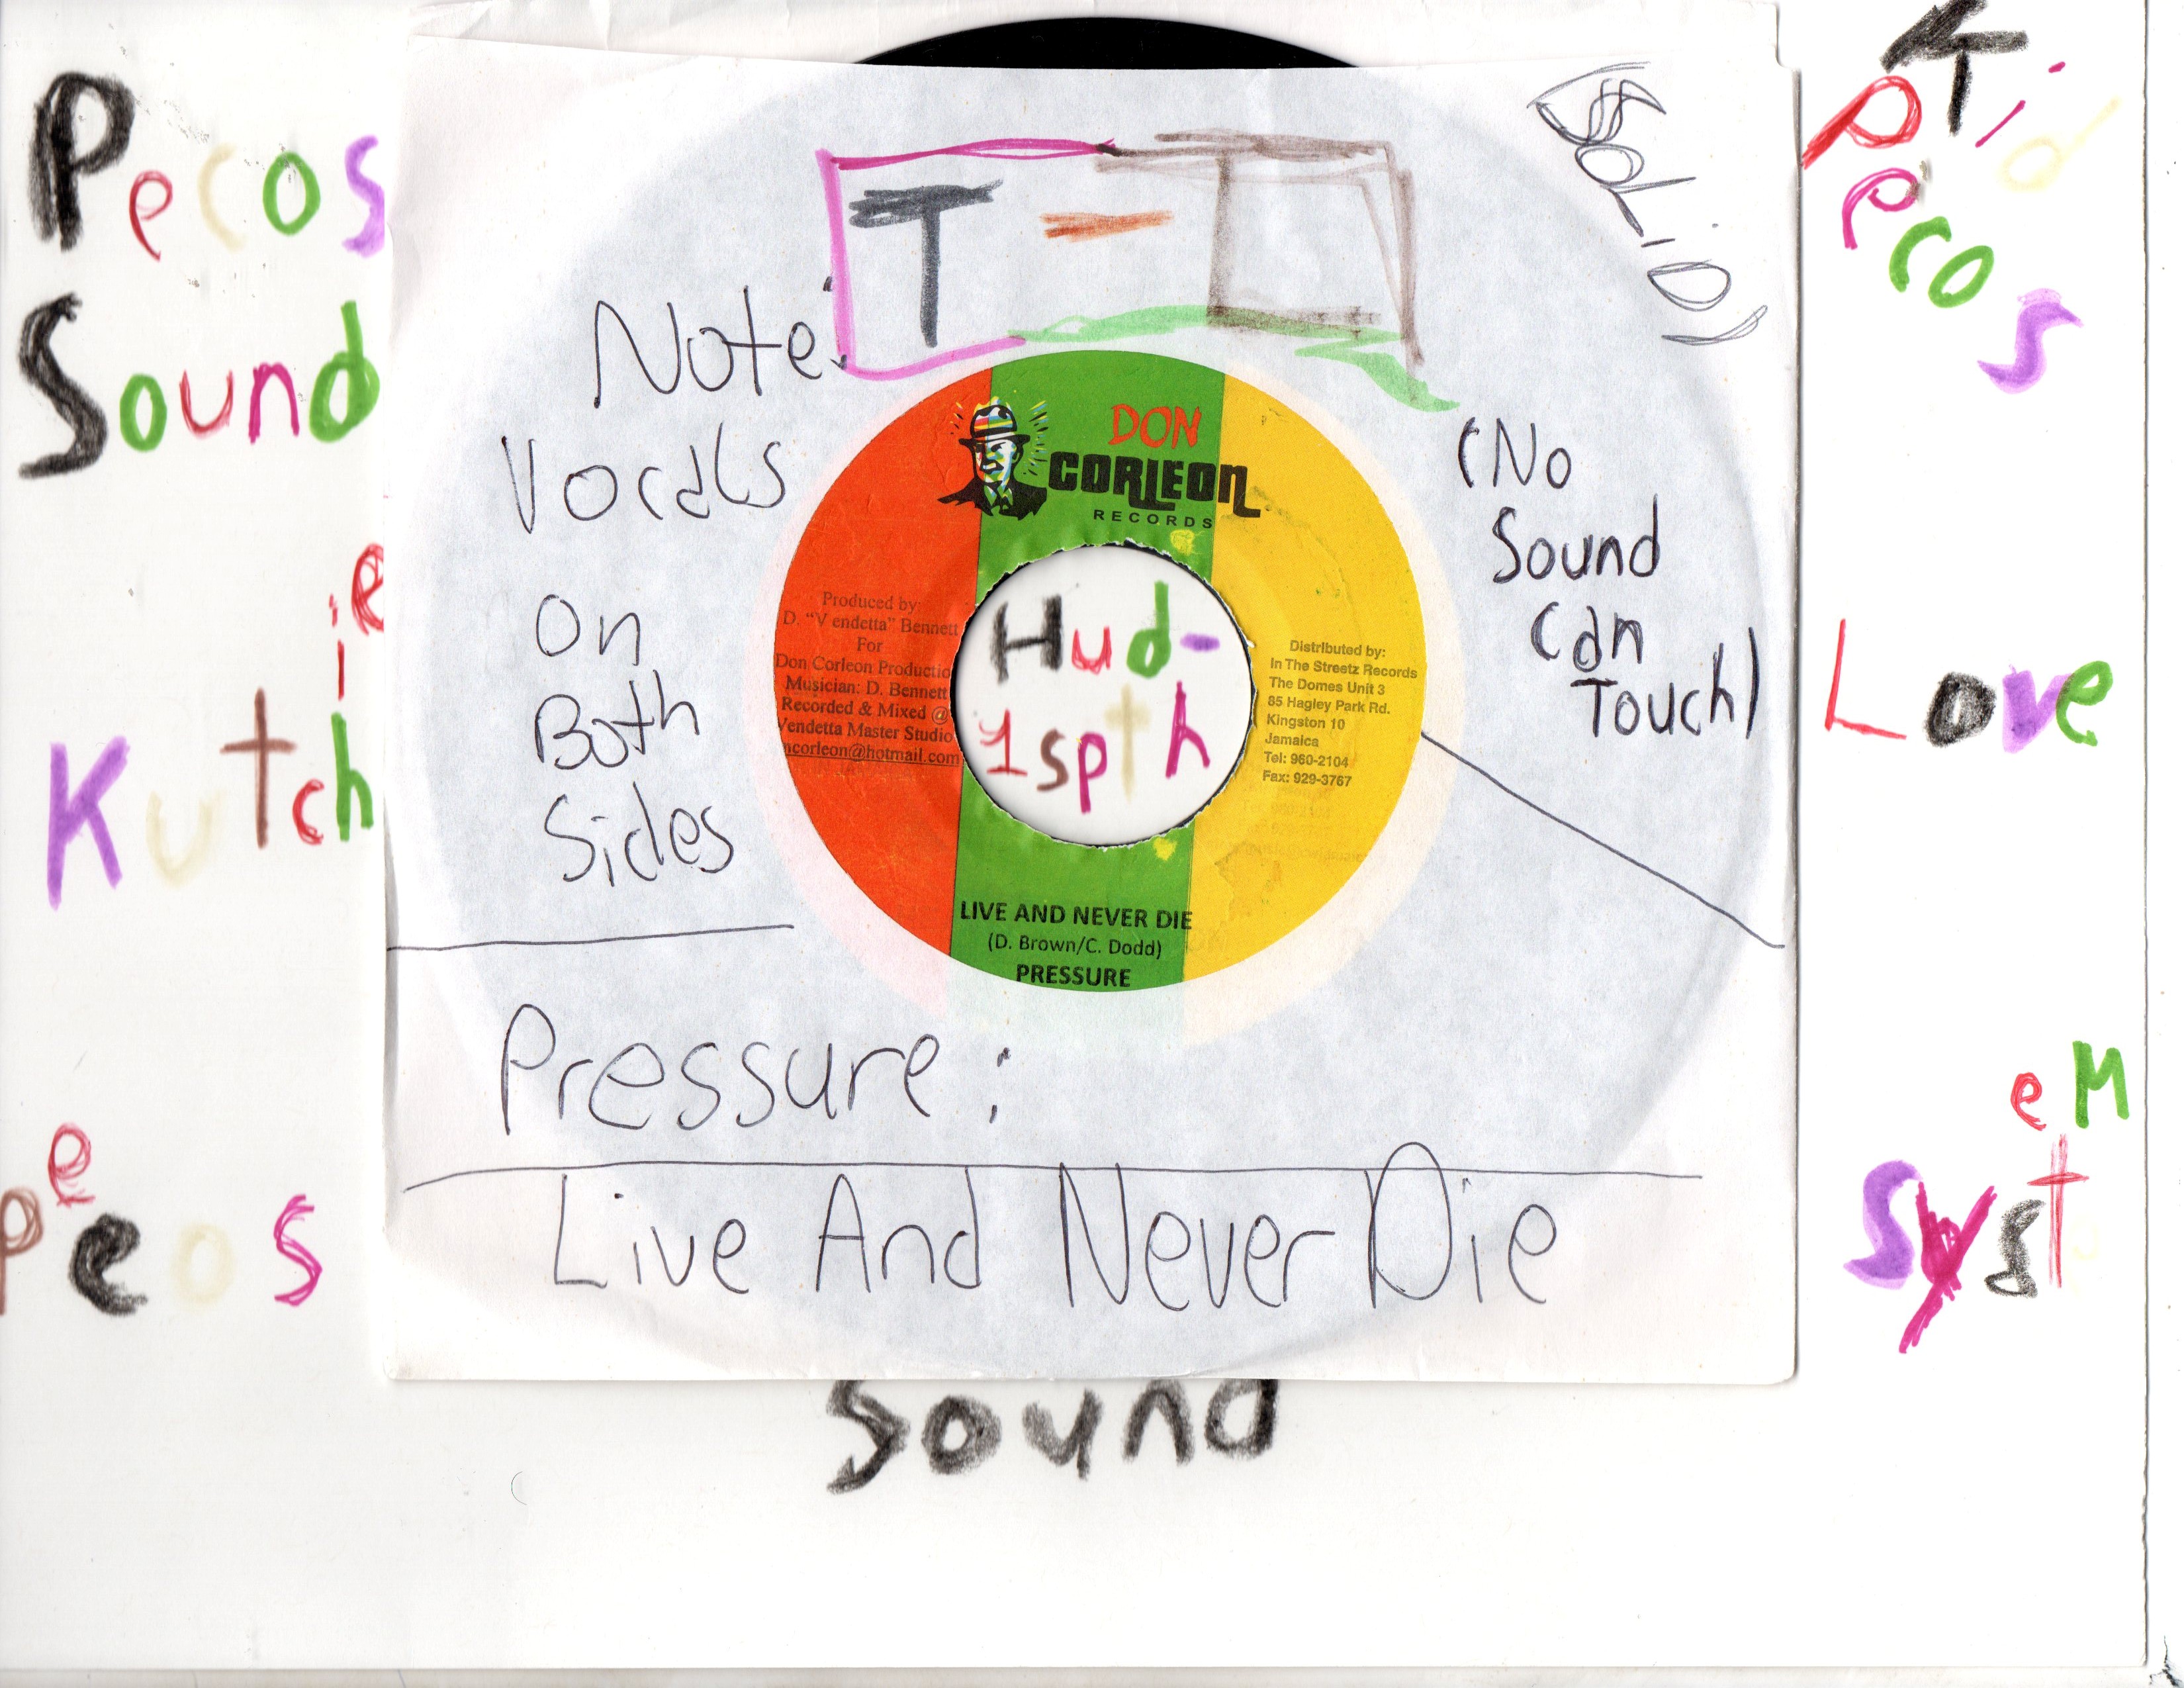 Pecos
Sound
Kutchie
Peeos
T -
Note:
Vocals
On
Both
Sides
(SOLiD)
(No
Sound
Can
Touch)
DON
CORLEON
RECORDS
Produced by:
D. "Vendetta" Bennett
For
Don Corleon Productio
Musician: D. Bennett
Recorded & Mixed @
Vendetta Master Studio
ncorleon@hotmail.com
Hud-
1spth
Distributed by:
In The Streetz Records
The Domes Unit 3
85 Hagley Park Rd.
Kingston 10
Jamaica
Tel: 960-2104
Fax: 929-3767
LIVE AND NEVER DIE
(D. Brown/C. Dodd)
PRESSURE
Pressure:
Live And Never Die
Sound
Kid
Pecos
Love
SysteM